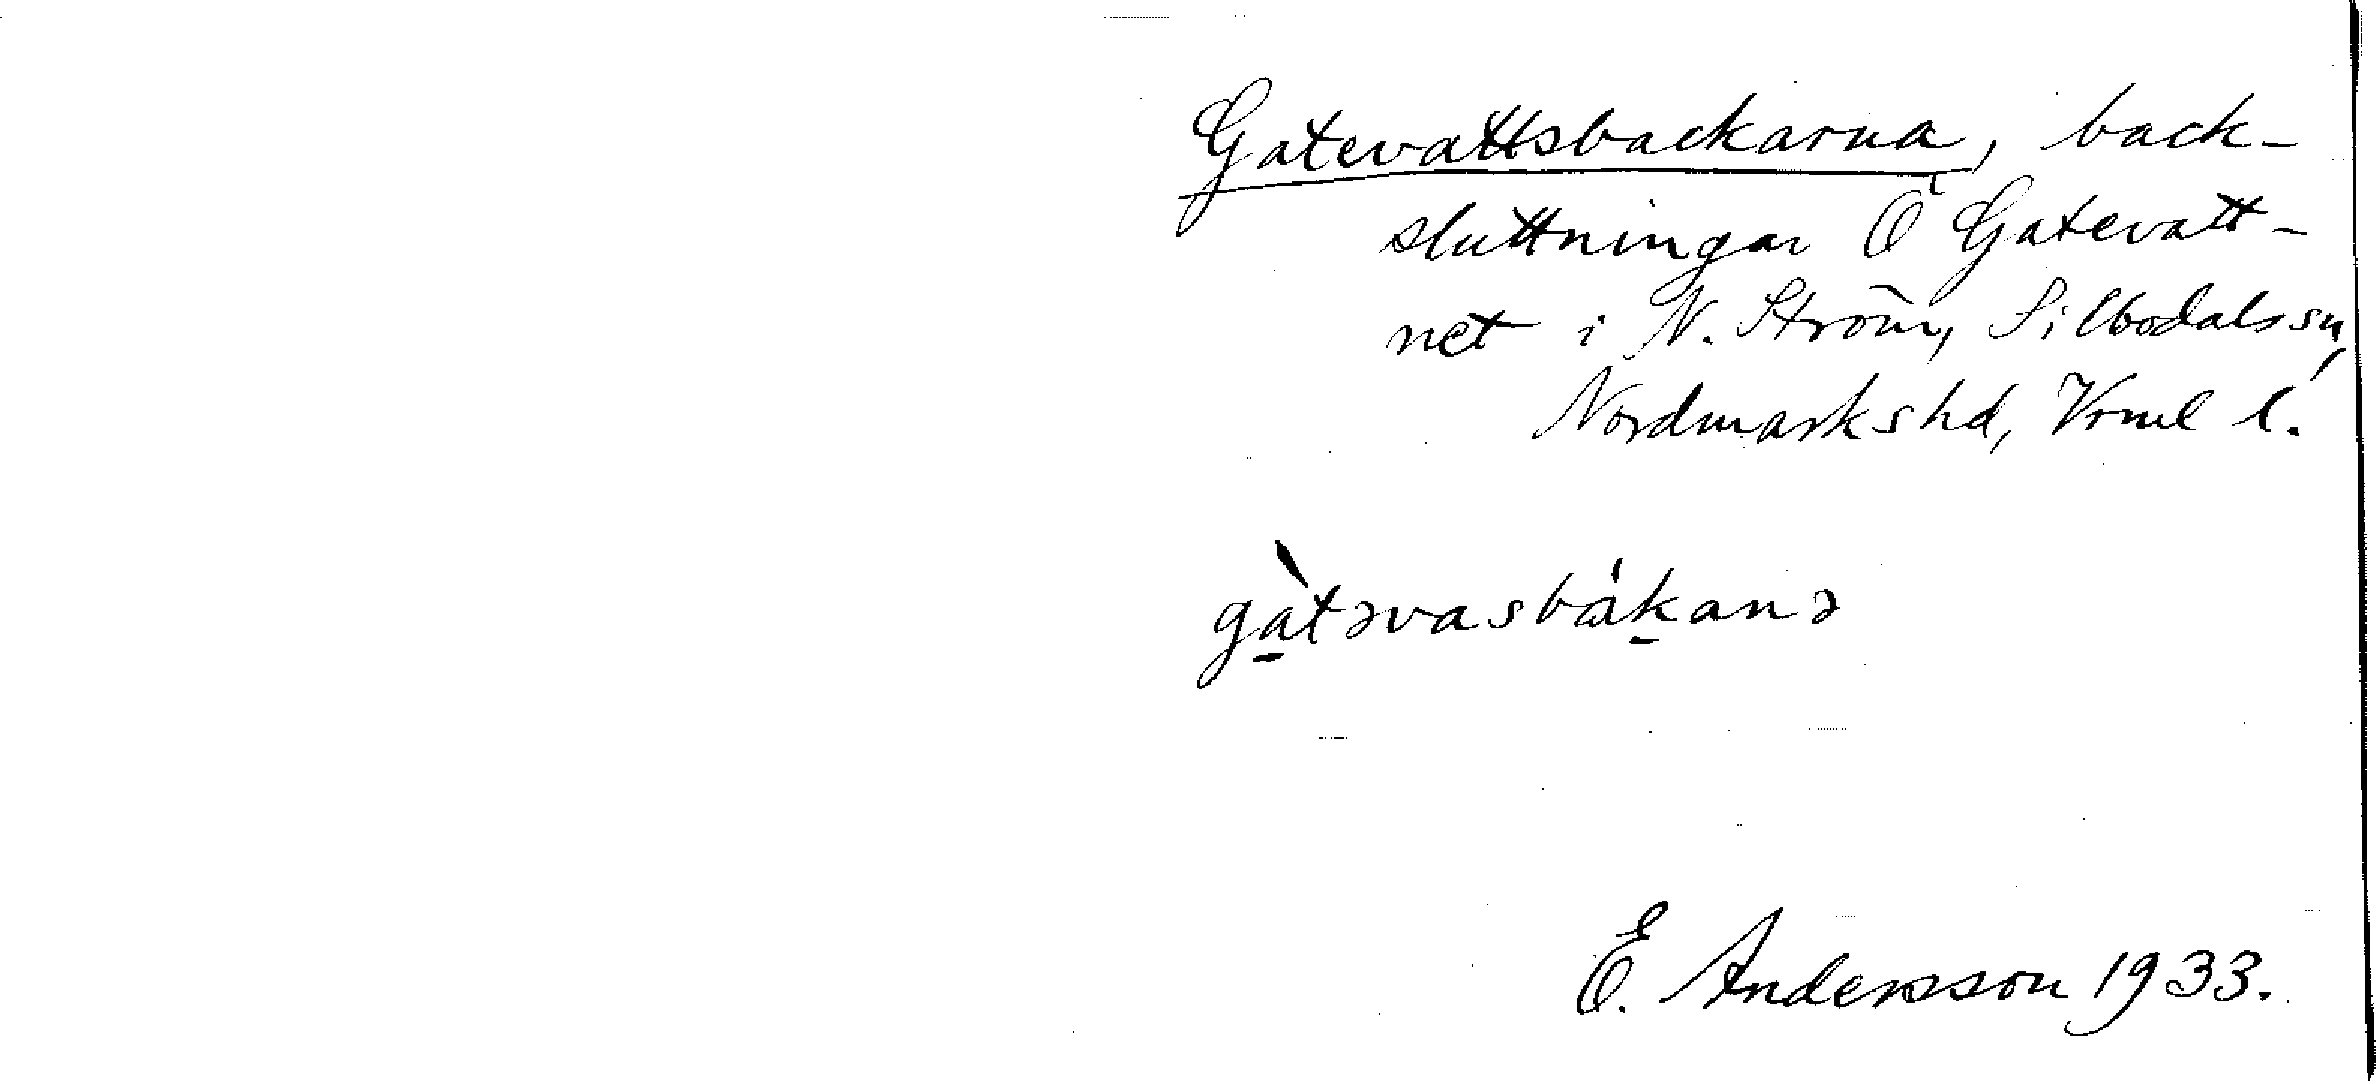 Gatevattsbackarna, back-
sluttningar Ö Gatevatt-
net i N. Ström, Silbodals sn,
Nordmarks hd, Vrml l.
gàtəvasbákanə
E. Andersson 1933.